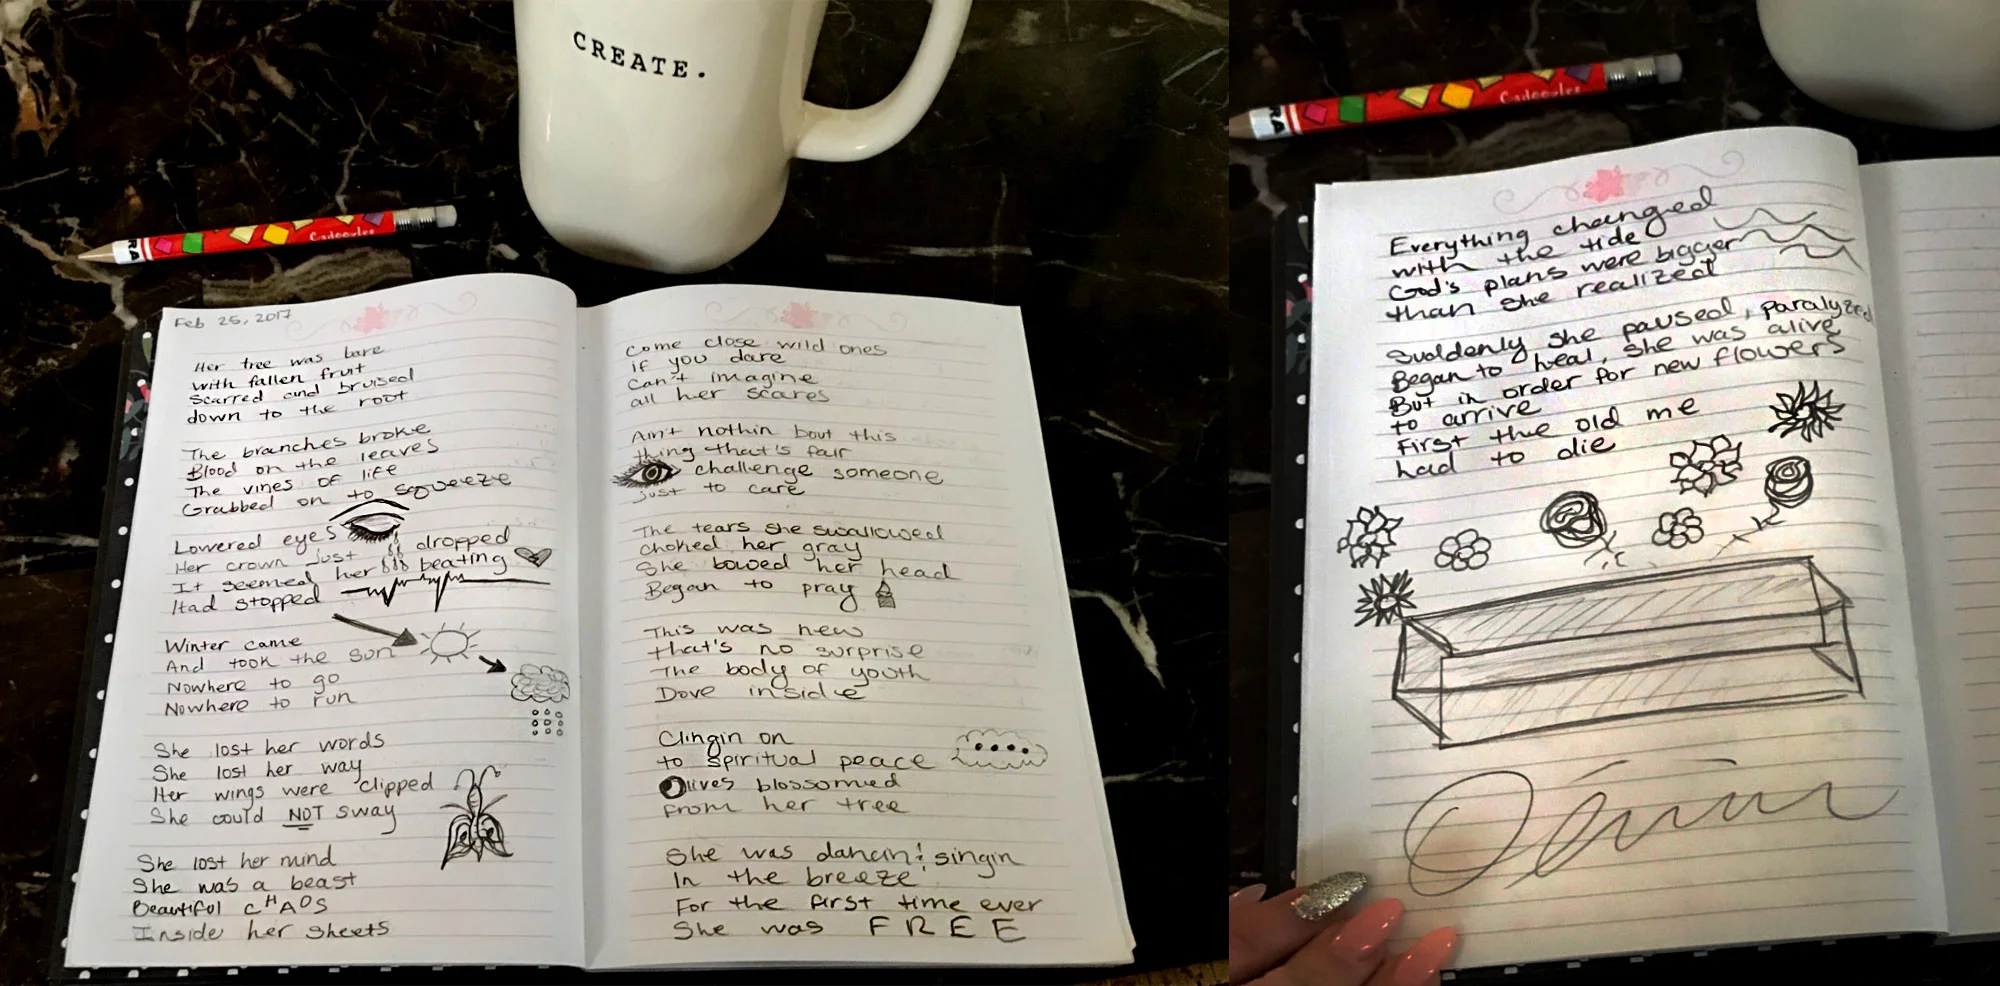 CREATE.
RA
Cadoozles
Feb 25, 2017
Her tree was bare
with fallen fruit
Scarred and bruised
down to the root
The branches broke
Blood on the leaves
The vines of life
Grabbed on to squeeze
Lowered eyes
Her crown just dropped
It seemed her beating
Had stopped
Winter came
And took the sun
Nowhere to go
Nowhere to run
She lost her words
She lost her way
Her wings were clipped
She could NOT sway
She lost her mind
She was a beast
Beautiful cHAOS
Inside her sheets
Come close wild ones
if you dare
Can't imagine
all her scares
Ain't nothin bout this
thing that's fair
challenge someone
just to care
The tears she swallowed
choked her gray
She bowed her head
Began to pray
This was new
that's no surprise
The body of youth
Dove inside
Clingin on
to spiritual peace
Olives blossomed
From her tree
She was dancin & singin
In the breeze
For the first time ever
She was FREE
RA
Cadoozles
Everything changed
with the tide
God's plans were bigger
than she realized
Suddenly she paused, paralyzed
Began to heal, she was alive
But in order for new flowers
to arrive
First the old me
had to die